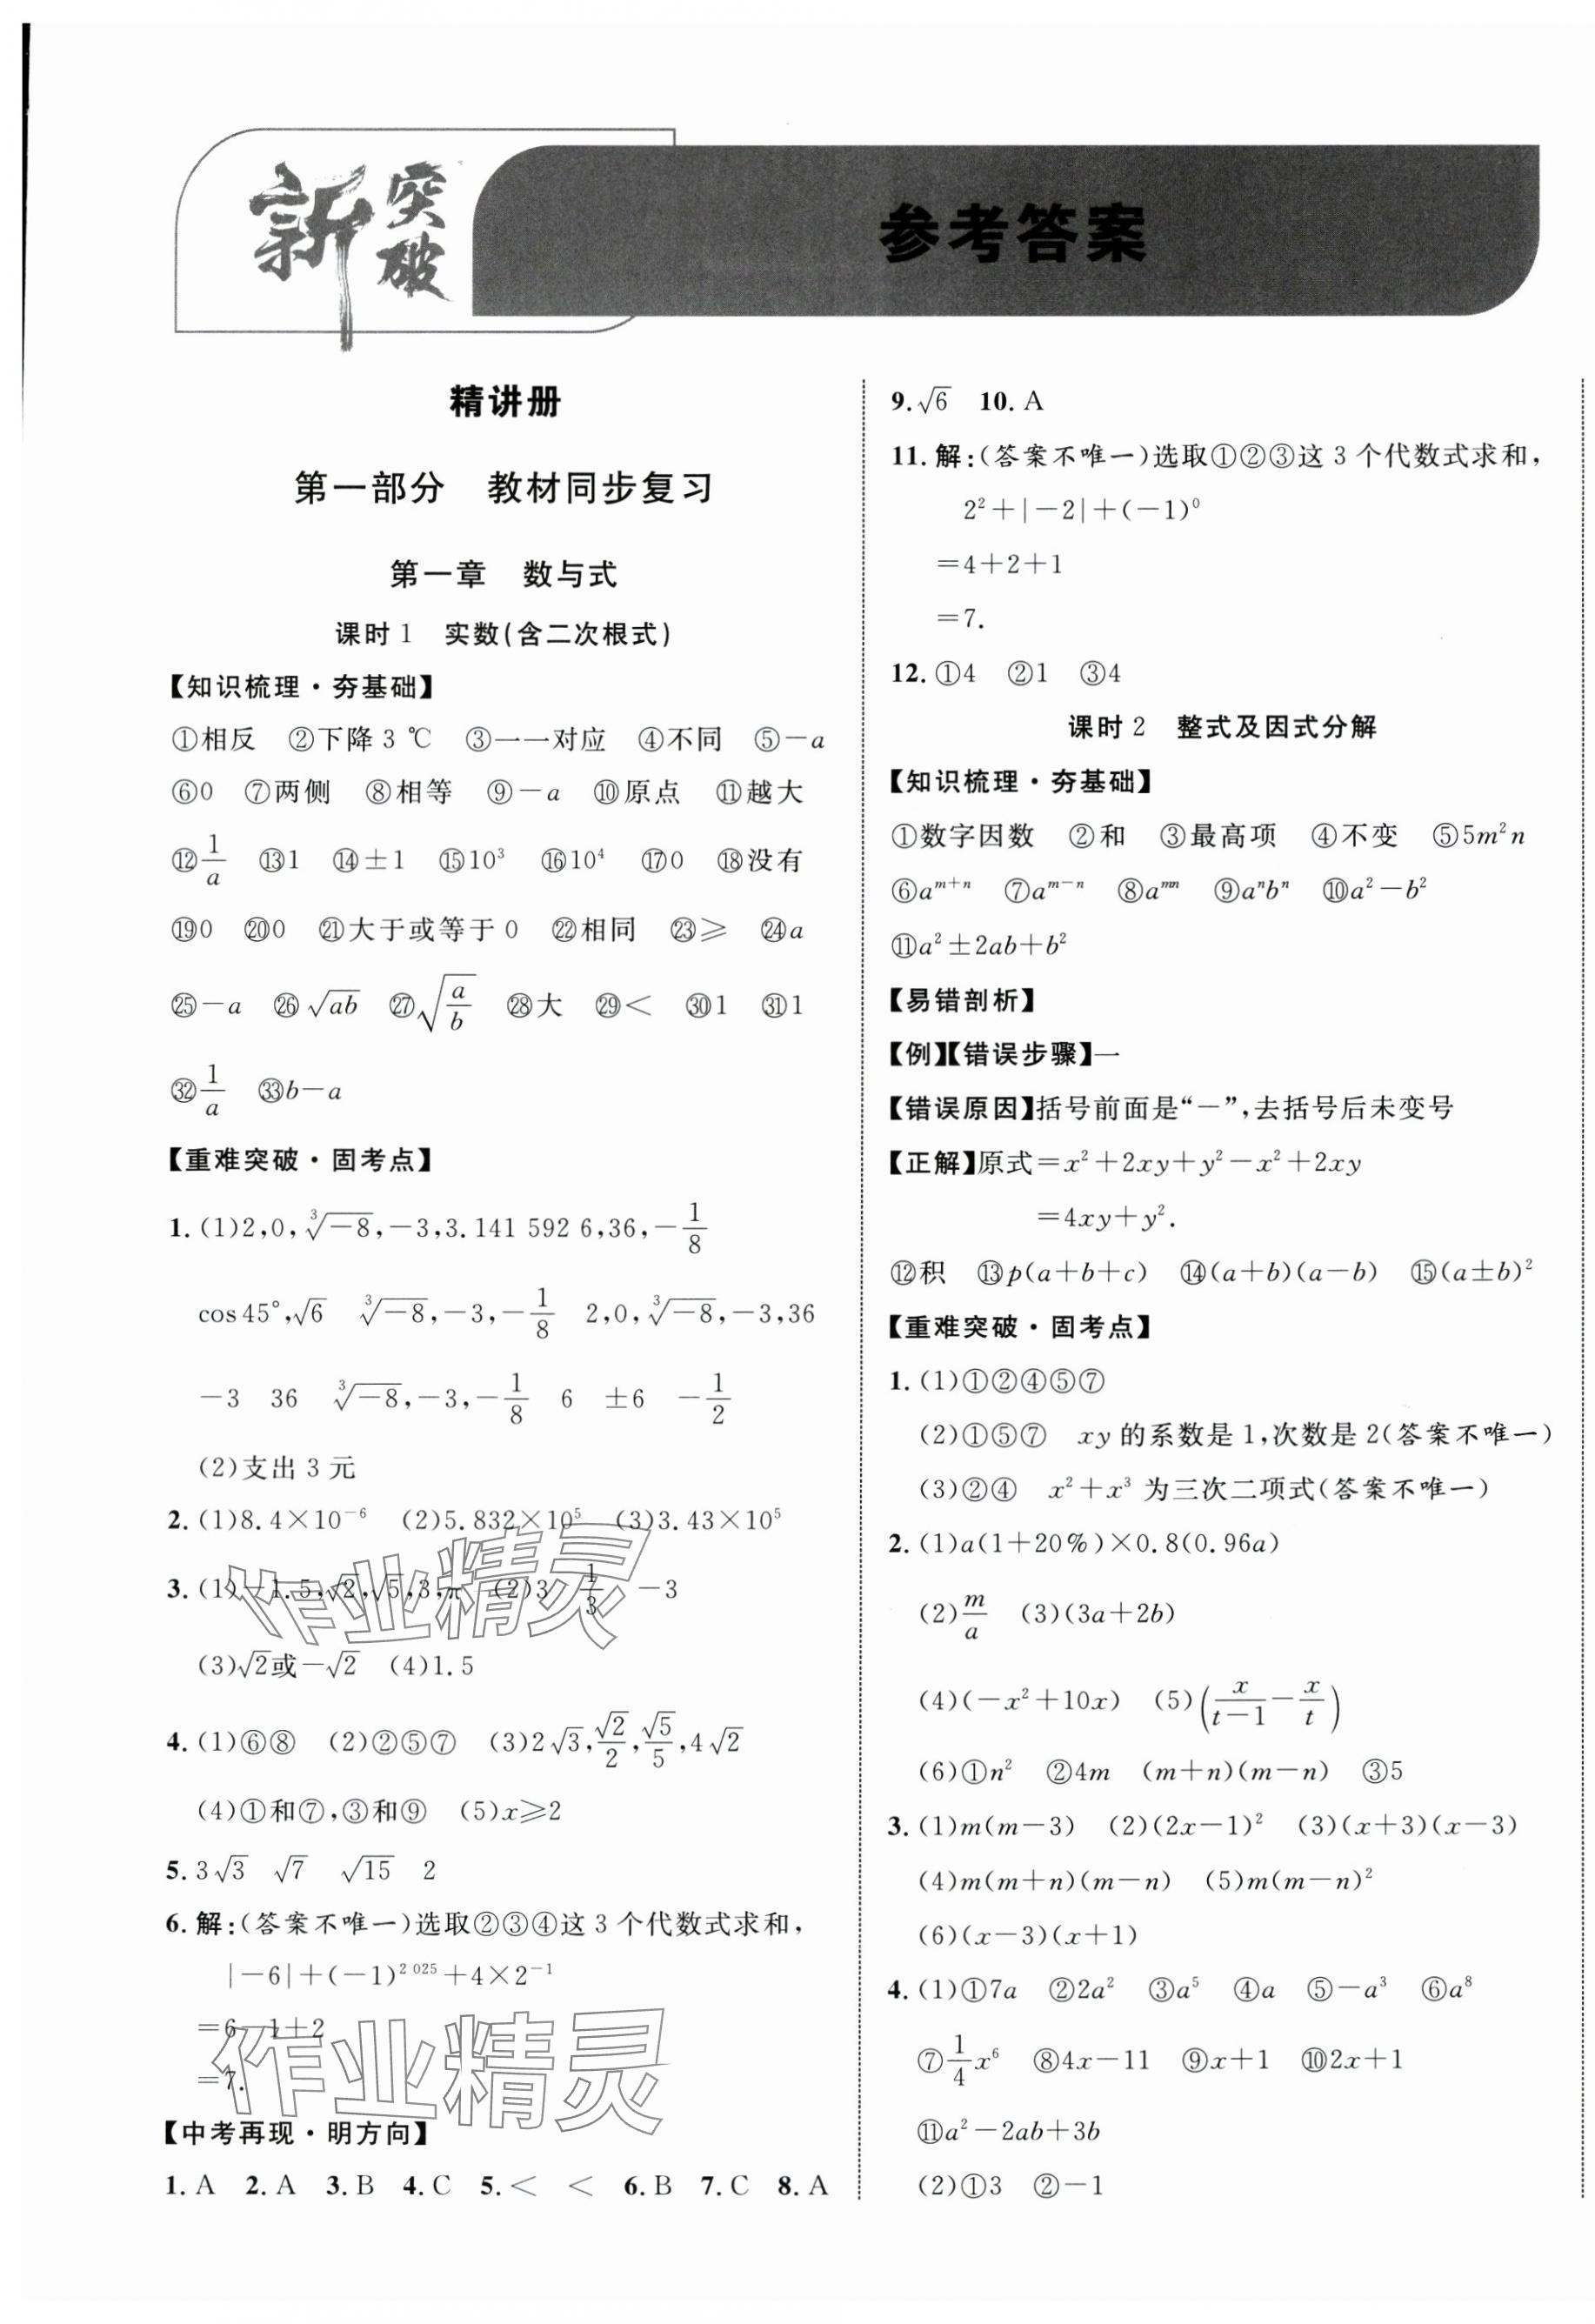 新突破
参考答案
精讲册
第一部分　教材同步复习
第一章　数与式
课时1　实数(含二次根式)
【知识梳理·夯基础】
①相反　②下降3 ℃　③一一对应　④不同　⑤－a
⑥0　⑦两侧　⑧相等　⑨－a　⑩原点　⑪越大
⑫1/a　⑬1　⑭±1　⑮10³　⑯10⁴　⑰0　⑱没有
⑲0　⑳0　㉑大于或等于0　㉒相同　㉓≥　㉔a
㉕－a　㉖√(ab)　㉗√(a/b)　㉘大　㉙＜　㉚1　㉛1
㉜1/a　㉝b－a
【重难突破·固考点】
1.(1)2,0,∛(－8),－3,3.141 592 6,36,－1/8
cos 45°,√6　∛(－8),－3,－1/8　2,0,∛(－8),－3,36
－3　36　∛(－8),－3,－1/8　6　±6　－1/2
(2)支出3元
2.(1)8.4×10⁻⁶　(2)5.832×10⁵　(3)3.43×10⁵
3.(1)－1.5,√2,√5,3,π　(2)3　1/3　－3
(3)√2或－√2　(4)1.5
4.(1)⑥⑧　(2)②⑤⑦　(3)2√3,√2/2,√5/5,4√2
(4)①和⑦,③和⑨　(5)x≥2
5.3√3　√7　√15　2
6.解:(答案不唯一)选取②③④这3个代数式求和,
|－6|＋(－1)²⁰²⁵＋4×2⁻¹
＝6－1＋2
＝7.
【中考再现·明方向】
1.A　2.A　3.B　4.C　5.＜　＜　6.B　7.C　8.A
9.√6　10.A
11.解:(答案不唯一)选取①②③这3个代数式求和,
2²＋|－2|＋(－1)⁰
＝4＋2＋1
＝7.
12.①4　②1　③4
课时2　整式及因式分解
【知识梳理·夯基础】
①数字因数　②和　③最高项　④不变　⑤5m²n
⑥aᵐ⁺ⁿ　⑦aᵐ⁻ⁿ　⑧aᵐⁿ　⑨aⁿbⁿ　⑩a²－b²
⑪a²±2ab＋b²
【易错剖析】
【例】【错误步骤】一
【错误原因】括号前面是“－”,去括号后未变号
【正解】原式＝x²＋2xy＋y²－x²＋2xy
＝4xy＋y².
⑫积　⑬p(a＋b＋c)　⑭(a＋b)(a－b)　⑮(a±b)²
【重难突破·固考点】
1.(1)①②④⑤⑦
(2)①⑤⑦　xy的系数是1,次数是2(答案不唯一)
(3)②④　x²＋x³为三次二项式(答案不唯一)
2.(1)a(1＋20%)×0.8(0.96a)
(2)m/a　(3)(3a＋2b)
(4)(－x²＋10x)　(5)(x/(t－1)－x/t)
(6)①n²　②4m　(m＋n)(m－n)　③5
3.(1)m(m－3)　(2)(2x－1)²　(3)(x＋3)(x－3)
(4)m(m＋n)(m－n)　(5)m(m－n)²
(6)(x－3)(x＋1)
4.(1)①7a　②2a²　③a⁵　④a　⑤－a³　⑥a⁸
⑦1/4x⁶　⑧4x－11　⑨x＋1　⑩2x＋1
⑪a²－2ab＋3b
(2)①3　②－1
作业精灵
作业精灵